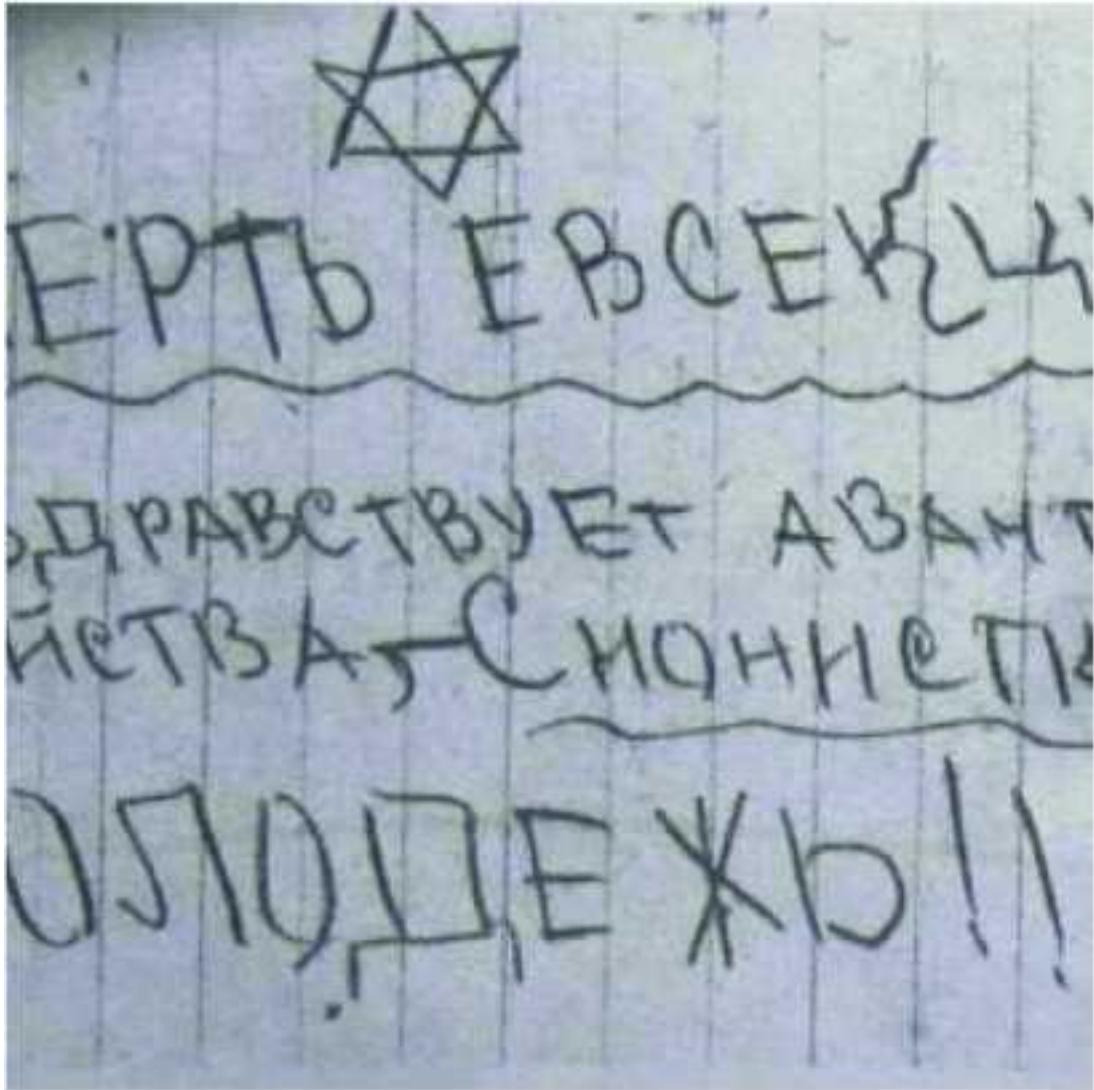 ЕРТЬ ЕВСЕКЦ
ЗДРАВСТВУЕТ АВАНТ
ЙСТВА,-СИОНИСТК
ОЛОДЕЖЬ!!